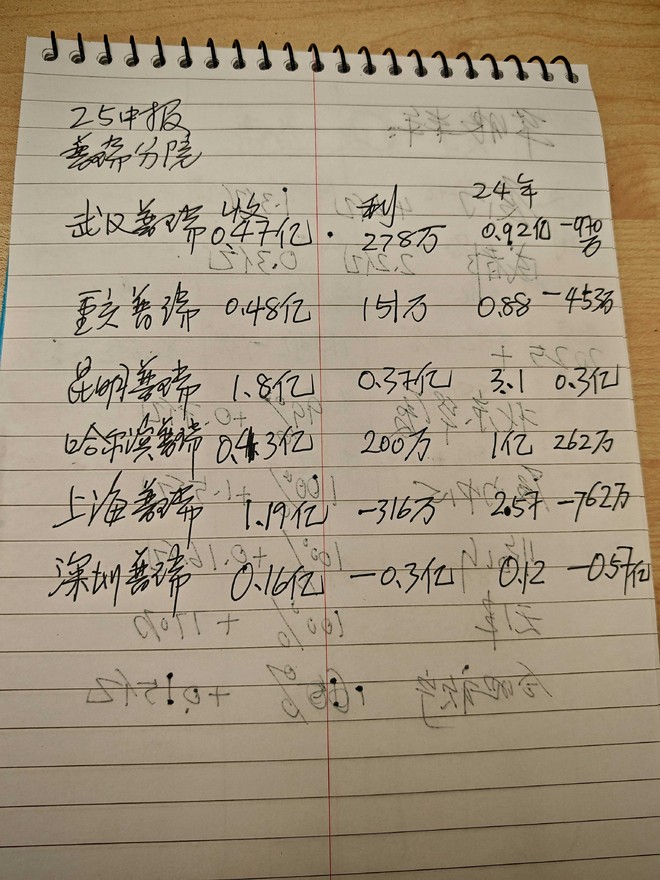 25中报
普瑞分院
收 利 24年
武汉普瑞 0.47亿 278万 0.92亿 -970万
重庆普瑞 0.48亿 151万 0.88 -453万
昆明普瑞 1.8亿 0.37亿 3.1 0.3亿
哈尔滨普瑞 0.43亿 200万 1亿 262万
上海普瑞 1.19亿 -316万 2.57 -762万
深圳普瑞 0.16亿 -0.3亿 0.12 -0.57亿